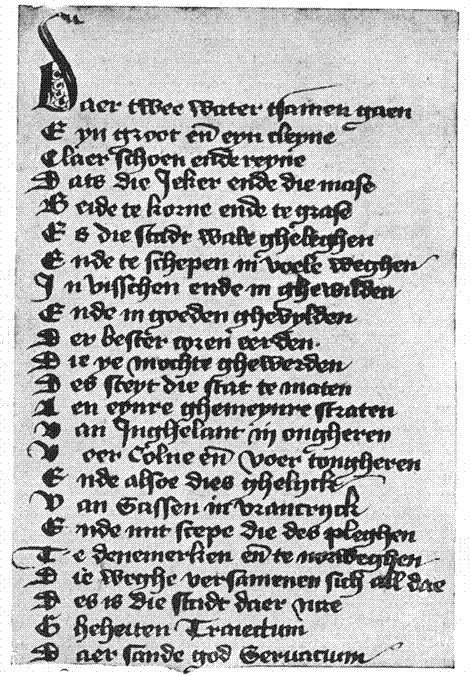 Daer twee water tsamen gaen
Eyn groot en̄ eyn cleyne
Claer schoen ende reyne
Dats die Jeker ende die mase
Beide te korne ende te grase
Es die stadt wale gheleghen
Ende te schepen in voele weghen
In visschen ende in ghewilden
Ende in goeden ghevylden
Der bester coren eerden
Die ye mochte ghewerden
Des steyt die stat te maten
Aen eynre ghemeynre straten
Van Inghelant in ongheren
Voer Colne en̄ voer tongheren
Ende alsoe dies ghelyck
Van Sassen in vrancryck
Ende mit scepe die des pleghen
Te denemerken en̄ te norweghen
Die weghe versamenen sich all dae
Des is die stadt daer nae
Gheheiten Traiectum
Daer sande god Seruatium